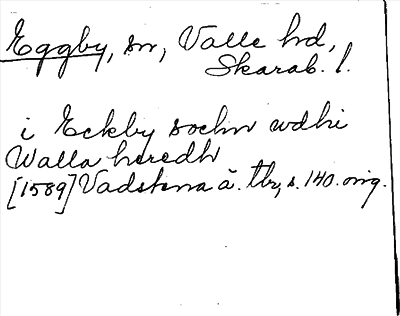 Eggby, sn, Valle hd,
Skarab. l.
i Eckby sochn wdhi
Walla heredh
[1589] Vadstena ä. tb, s. 140. orig.